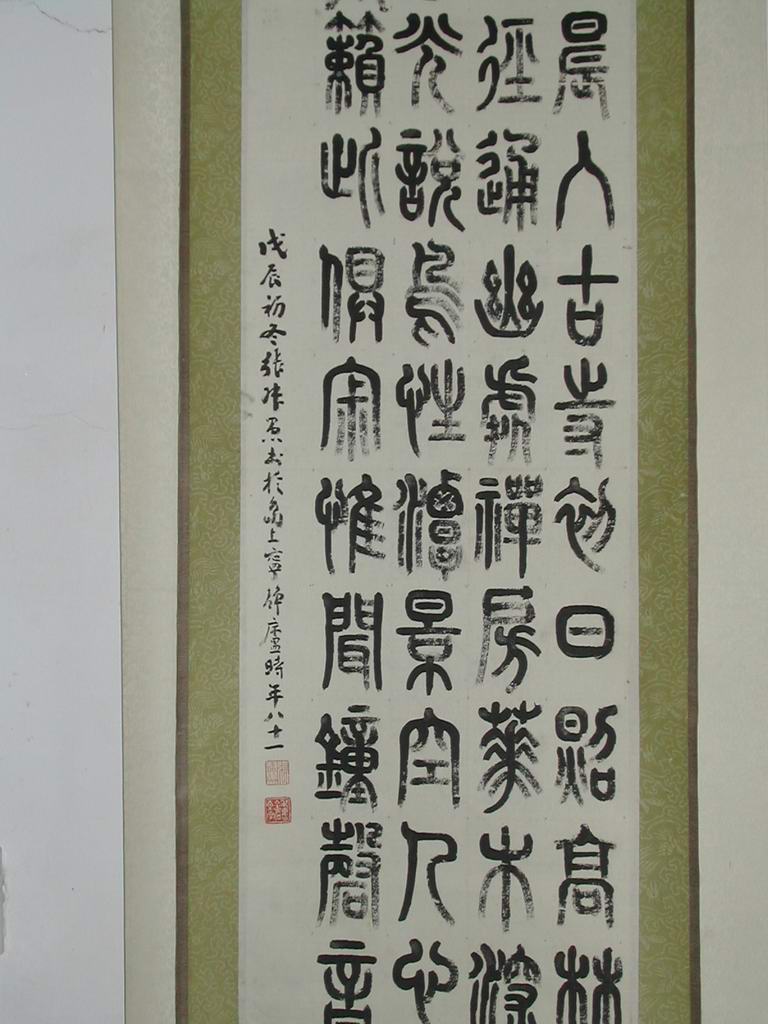 晨入古寺初日照高林
徑通幽處禪房華木深
光說鳥性潭景空人心
籟此俱寂惟聞鐘磬音
戊辰初冬張書於島上寧靜廬時年八十一